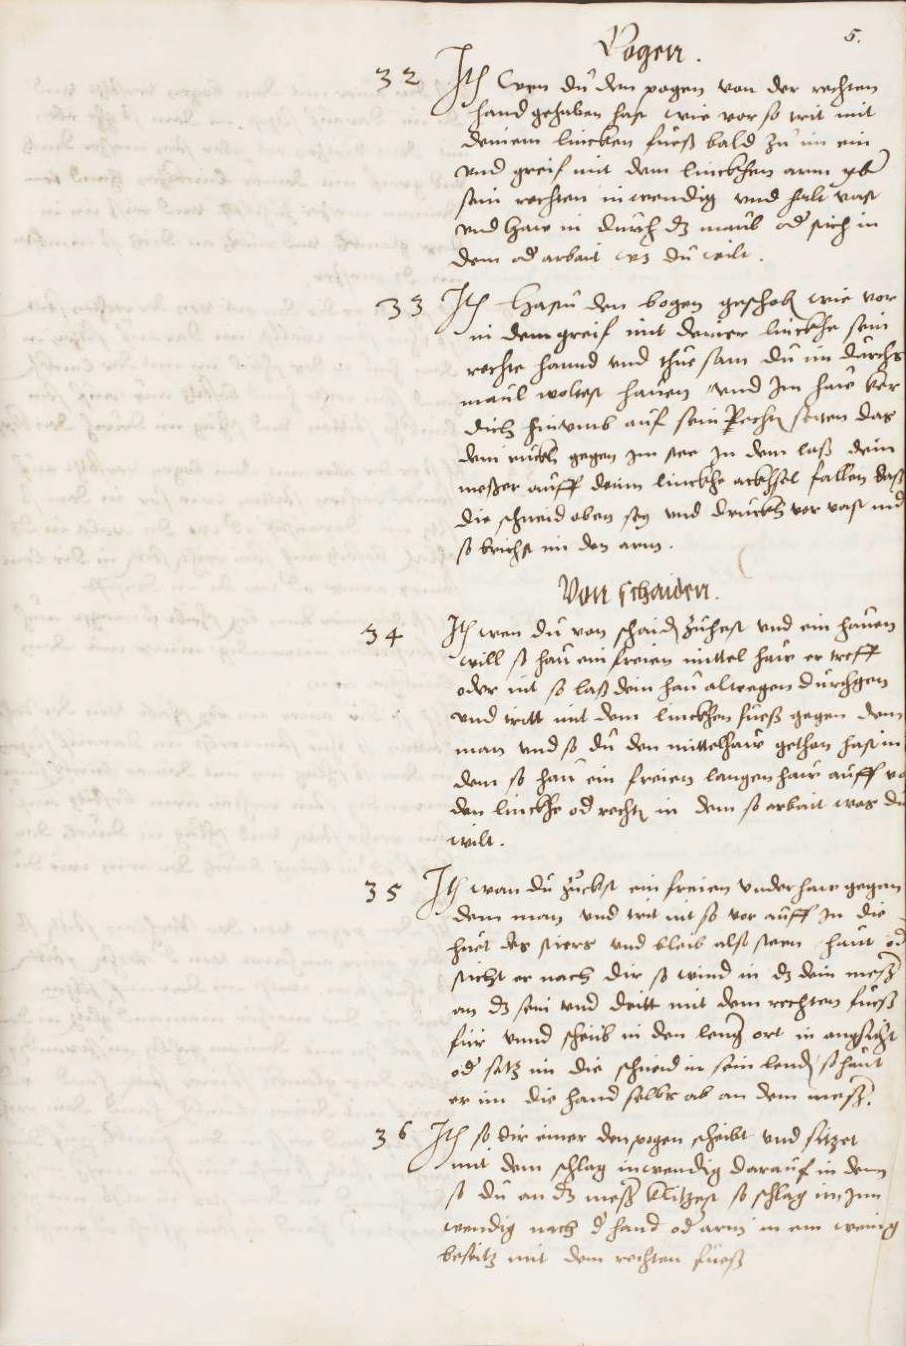 5.
Pogen.
32 Ith Wen du den pogen von der rechten
hand gehaben hast wie vor so trit mit
deinem lincken fueß bald zu im ein
vnd greif mit dem linckhen arm vb
sein rechten inwendig vnd halt vast
vnd haw in durch dz maul od stich in
dem od arbait wz du wilt.
33 Ith Hastu den bogen geschobn wie vor
in dem greif mit deiner linckhe sein
rechte hannd vnd thue sam du im durchs
maul woltest hauen vnd Im haw ker
dich hinumb auf sein Rechtn seiten das
dein ruckh gegen im stee In dem laß dein
messer auff deim linckhe achsel fallen das
die schneid oben sey vnd druckh vor vast nid
so brichst im den arm.
Von schaiden.
34 Ith wen du von schaidn zuhest vnd ein hauen
will so hau ein freien mittel haw er treff
oder nit so laß dein hau alwegen durchgen
vnd tritt mit dem linckhen fueß gegen dem
man vnd so du den mittelhaw gethon hast in
dem so hau ein freien langen haw auff vo
den linckhe od rechtn in dem so arbait was du
wilt.
35 Ith wan du zuckst ein freien vnderhaw gegen
dem man vnd trit nit so vor auff In die
huet des stiers vnd bleib alst steen haut od
sticht er nach dir so wind in dz dein mess
an dz sein vnd dritt mit dem rechten fueß
für vnnd scheub in den leng ort in angsicht
od setz im die schneid in sein lendn so haut
er im die hand selbs ab an dem mess.
36 Ith so dir einer den pogen scheibt vnd sitzet
mit dem schlag inwendig darauf in dem
so du an dz mess klitzest so schlag im Inn
wendig nach d hand od arm in ein wenig
beseitz mit dem rechten fueß